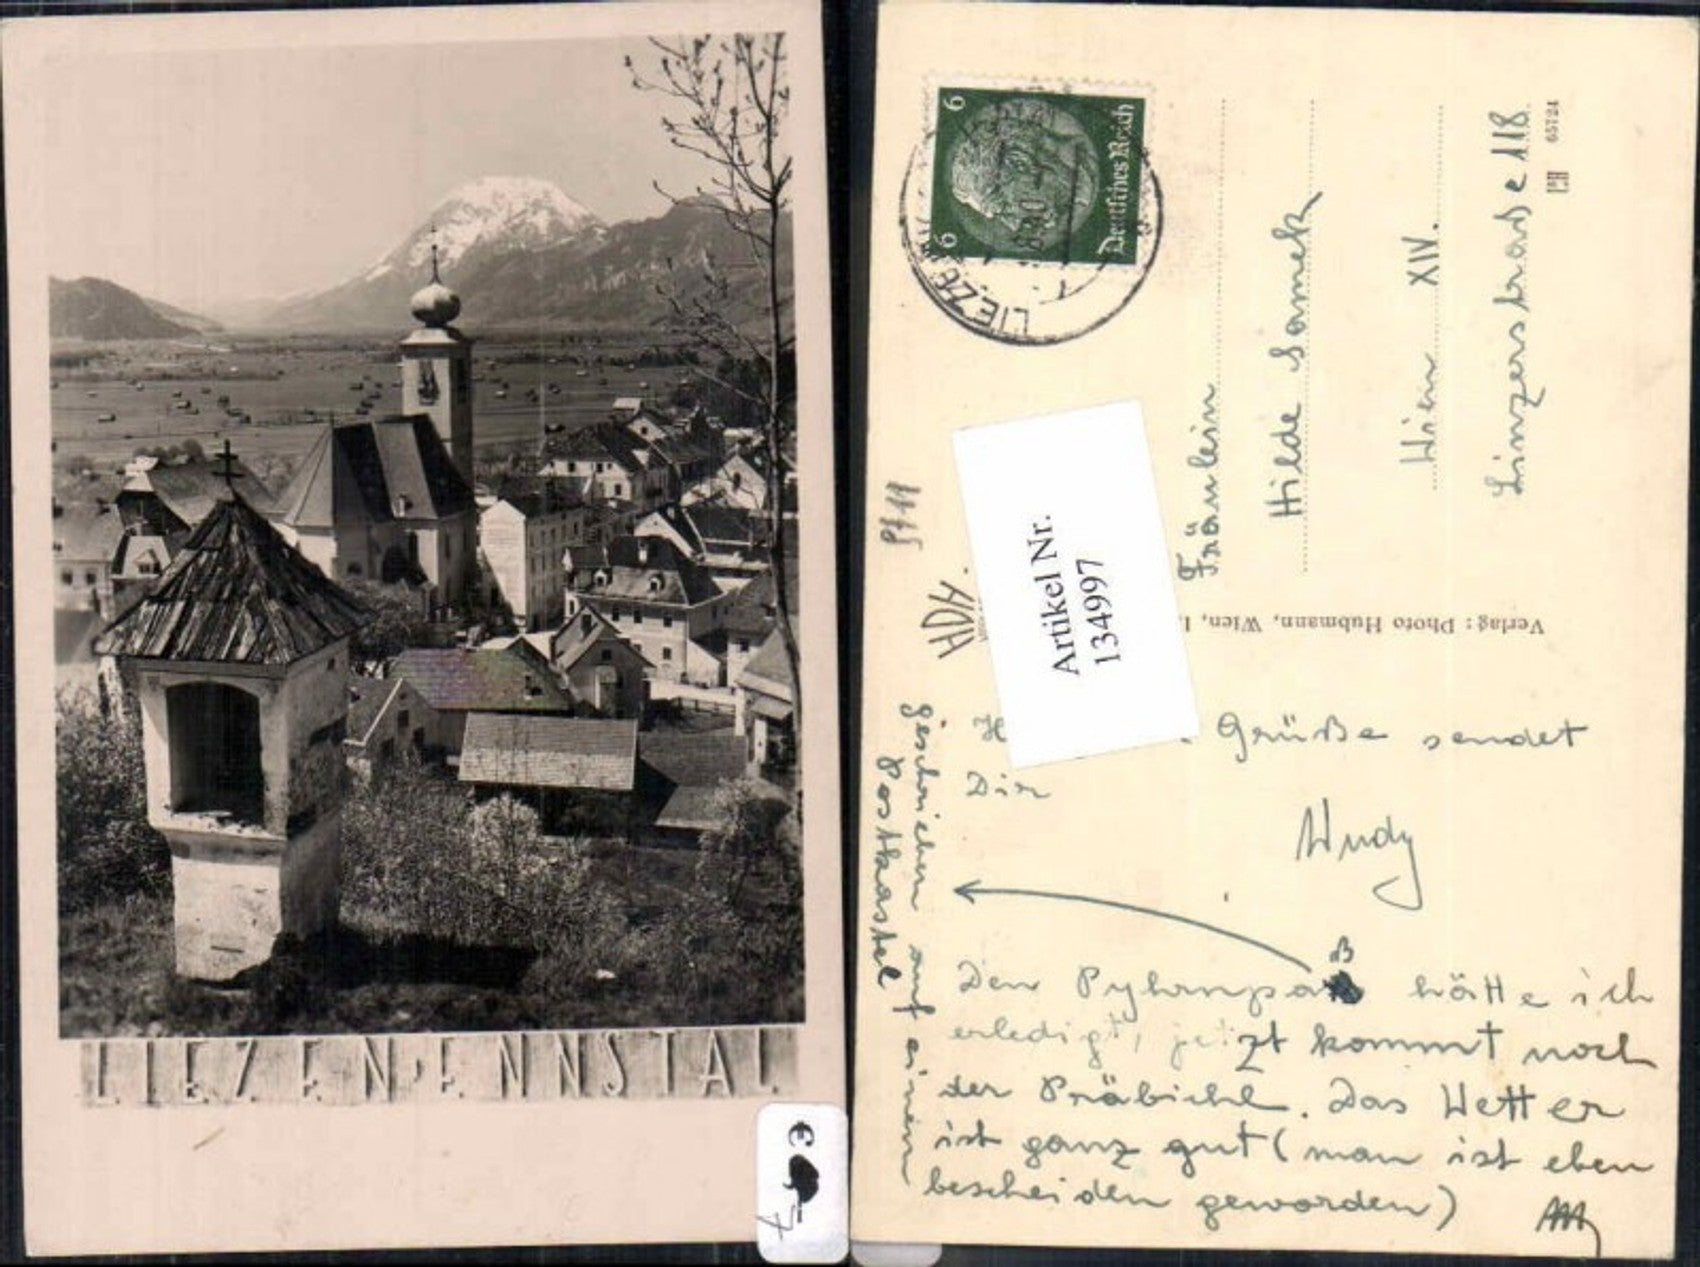 LIEZEN, ENNSTAL
€ 7
Deutsches Reich
6
6
LIEZEN
Artikel Nr.
134997
Fräulein
Hilde Samek
Wien XIV.
Linzerstraße 18.
65724
Verlag: Photo Hubmann, Wien, I.
Grüße sendet
Dir
Den Pyhrnpaß hätte ich
erledigt, jetzt kommt noch
der Präbichl. Das Wetter
ist ganz gut (man ist eben
bescheiden geworden)
geschrieben auf einem
Postkastel